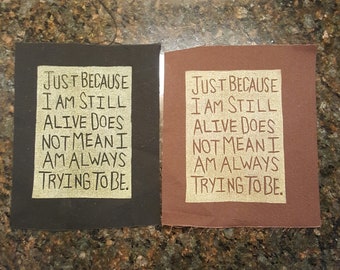 JUST BECAUSE
I AM STILL
ALIVE DOES
NOT MEAN I
AM ALWAYS
TRYING TO BE.
JUST BECAUSE
I AM STILL
ALIVE DOES
NOT MEAN I
AM ALWAYS
TRYING TO BE.